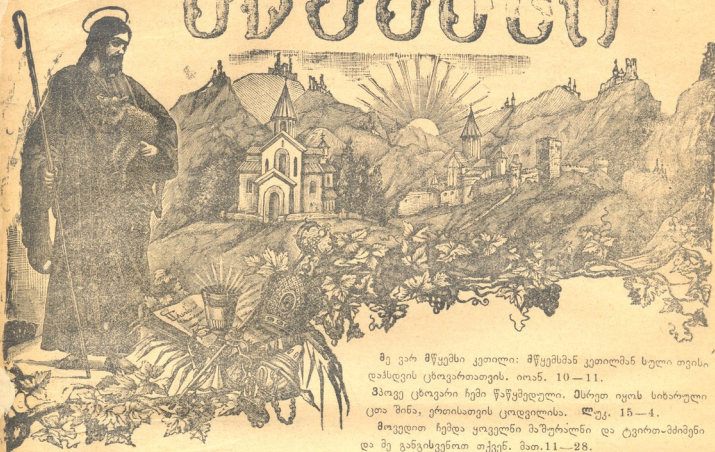 მწყემსი
მე ვარ მწყემსი კეთილი: მწყემსმან კეთილმან სული თვისი
დაჰსდვის ცხოვართათვის. იოან. 10—11.
ვპოვე ცხოვარი ჩემი წაწყმედული. ესრეთ იყოს სიხარული
ცთა შინა, ერთისათვის ცოდვილისა. ლუკ. 15—4.
მოვედით ჩემდა ყოველნი მაშურალნი და ტვირთ-მძიმენი
და მე განგისვენოთ თქვენ. მათ.11—28.